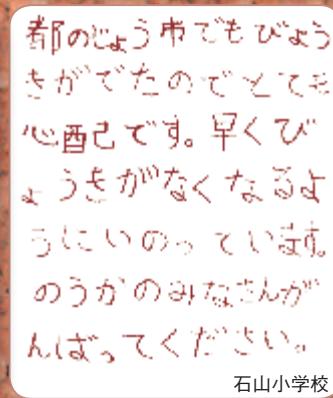 都のじょう市でもびょう
きがでたのでとても
心配です。早くび
ょうきがなくなるよ
うにいのっています。
のうかのみなさんが
んばってください。
石山小学校